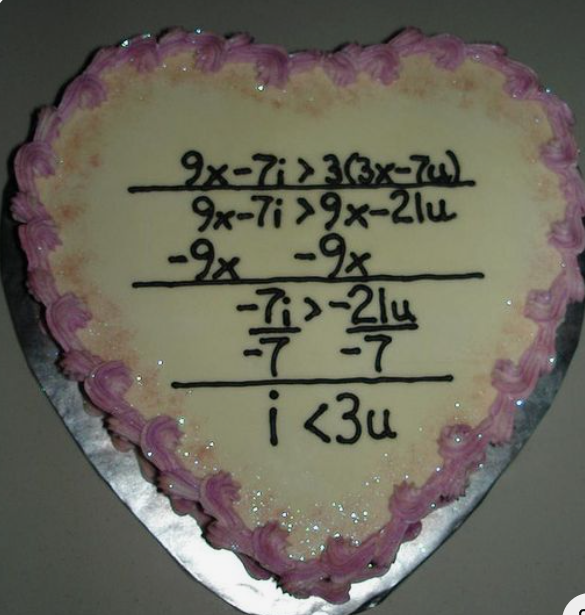 9x-7i > 3(3x-7u)
9x-7i > 9x-21u
-9x -9x
-7i > -21u
-7 -7
i <3u